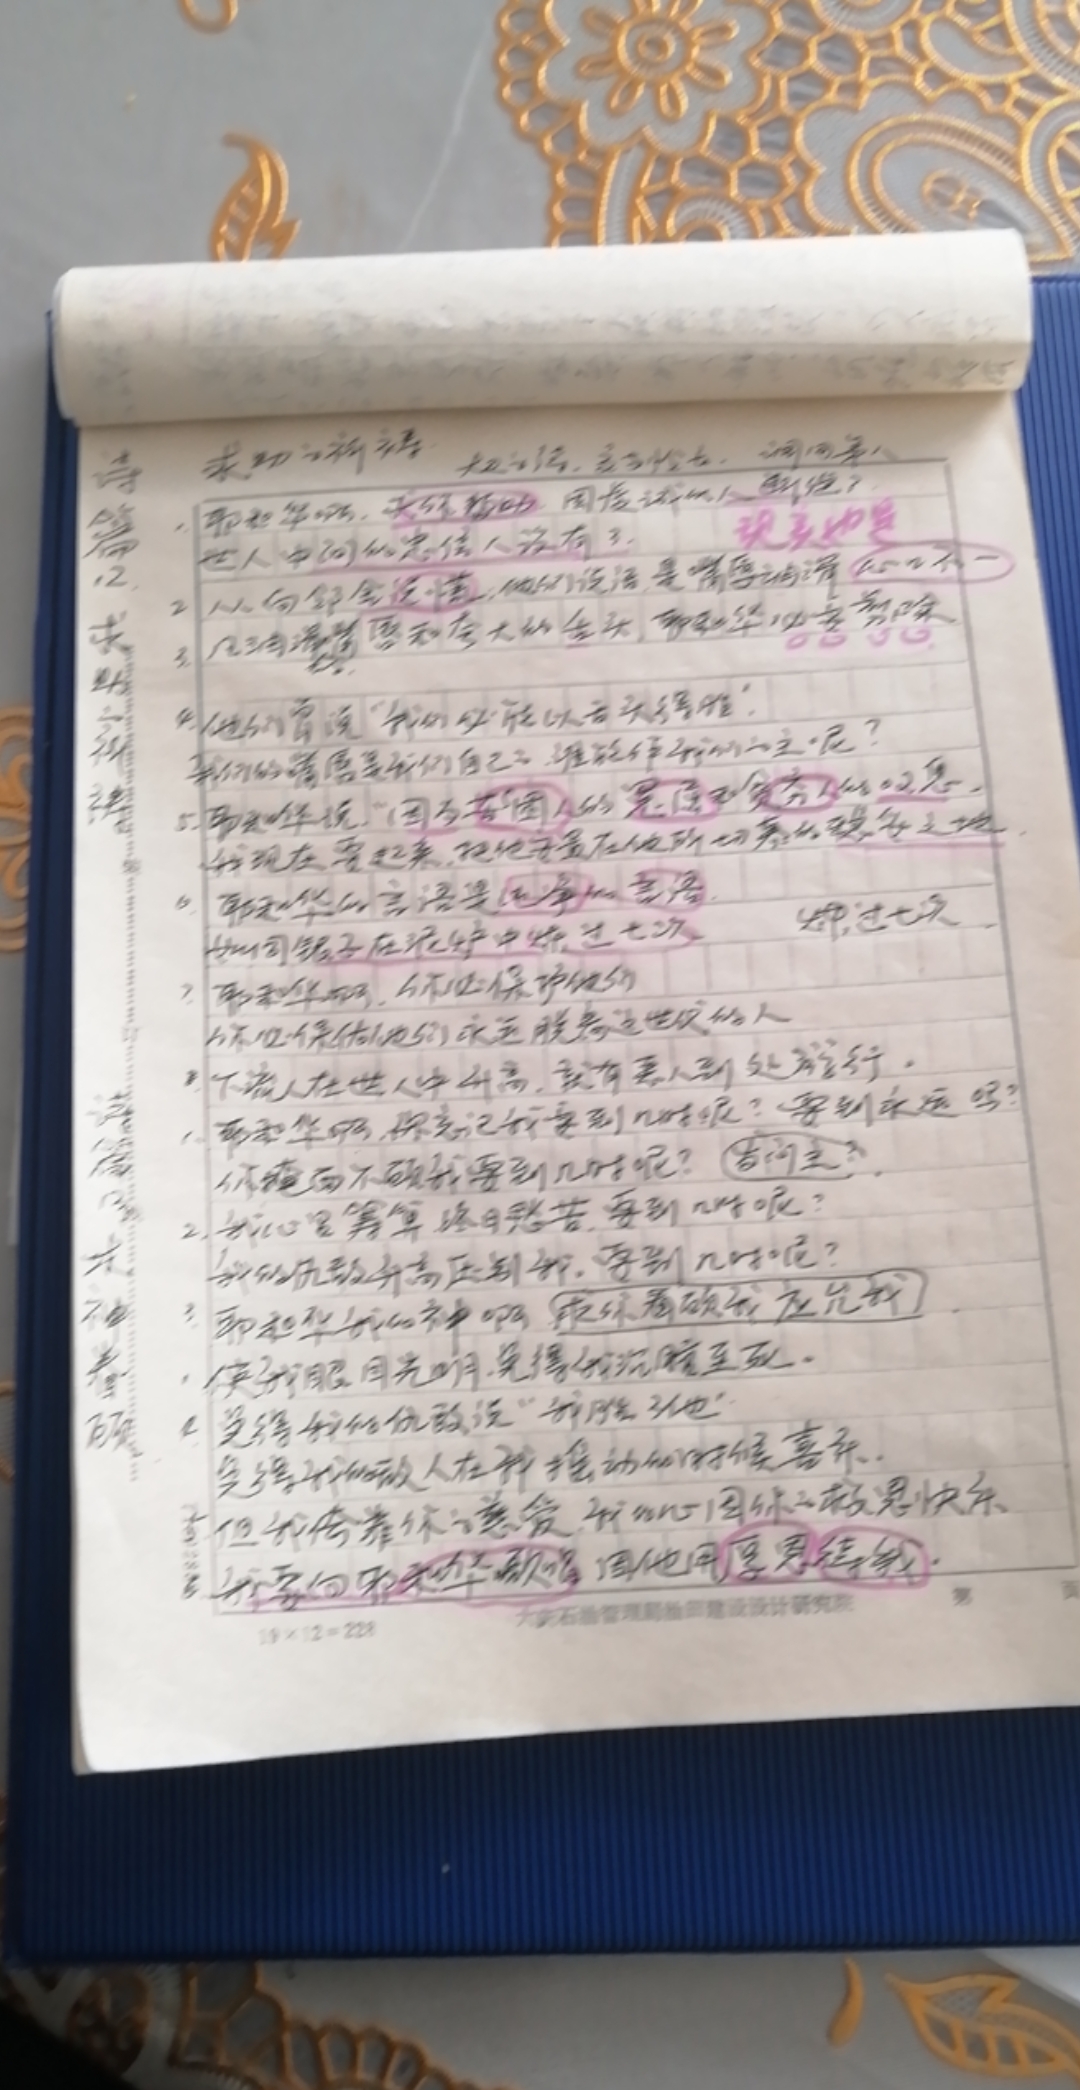 求助之祈祷
诗篇12 求助祈祷
1. 耶和华啊，求你帮助，因虔诚的人断绝了
世人中间的忠信人没有了.
现在也是
2 人人向邻舍说谎，他们说话是嘴唇油滑 心口不一
3. 凡油滑嘴唇和夸大的舌头，耶和华必要剪除
4. 他们曾说“我们必能以舌头得胜”.
我们的嘴唇是我们自己的，谁能作我们的主呢？
5. 耶和华说“因为苦困人的冤屈和贫穷人的叹息.
我现在要起来，把他安置在他所切慕的稳妥之地.
6. 耶和华的言语是纯净的言语.
如同银子在泥炉中炼过七次 炼过七次
7. 耶和华啊，你必保护他们
你必保佑他们永远脱离这世代的人
8. 下流人在世人中升高，就有恶人到处游行.
1. 耶和华啊，你忘记我要到几时呢？要到永远吗？
你掩面不顾我要到几时呢？
2. 我心里筹算终日愁苦，要到几时呢？
我的仇敌升高压制我，要到几时呢？
3. 耶和华我的神啊 求你看顾我 应允我
使我眼目光明，免得我沉睡至死.
4. 免得我的仇敌说“我胜了他”
免得我的敌人在我摇动的时候喜乐.
但我倚靠你的慈爱，我的心因你的救恩快乐
我要向耶和华歌唱 因他用厚恩待我.
诗篇13 求神看顾
19×12=228
第 页